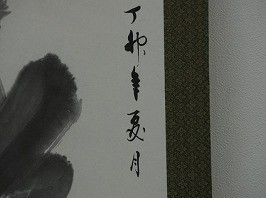 丁卯年夏月